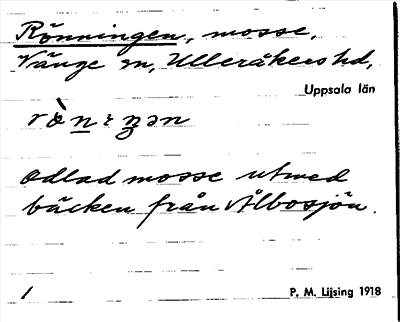 Rönningen, mosse,
Vänge sn, Ulleråkers hd,
Uppsala län
odlad mosse utmed
bäcken från Ålbosjön.
1
P. M. Lijsing 1918